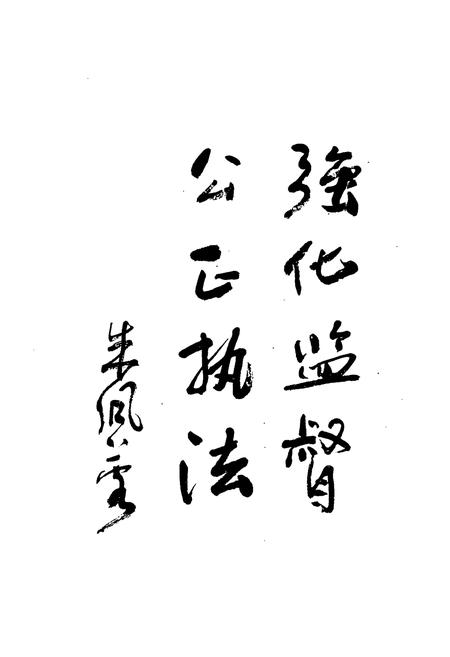 强化监督
公正执法
朱佩雯